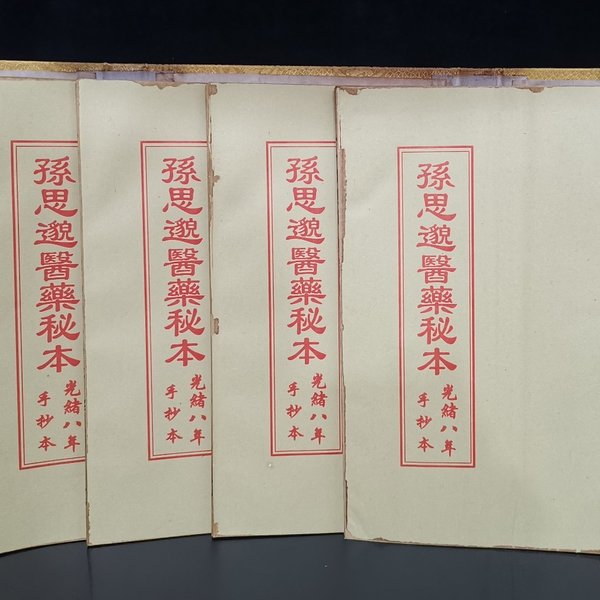 孫思邈醫藥秘本
光緒八年
手抄本
孫思邈醫藥秘本
光緒八年
手抄本
孫思邈醫藥秘本
光緒八年
手抄本
孫思邈醫藥秘本
光緒八年
手抄本